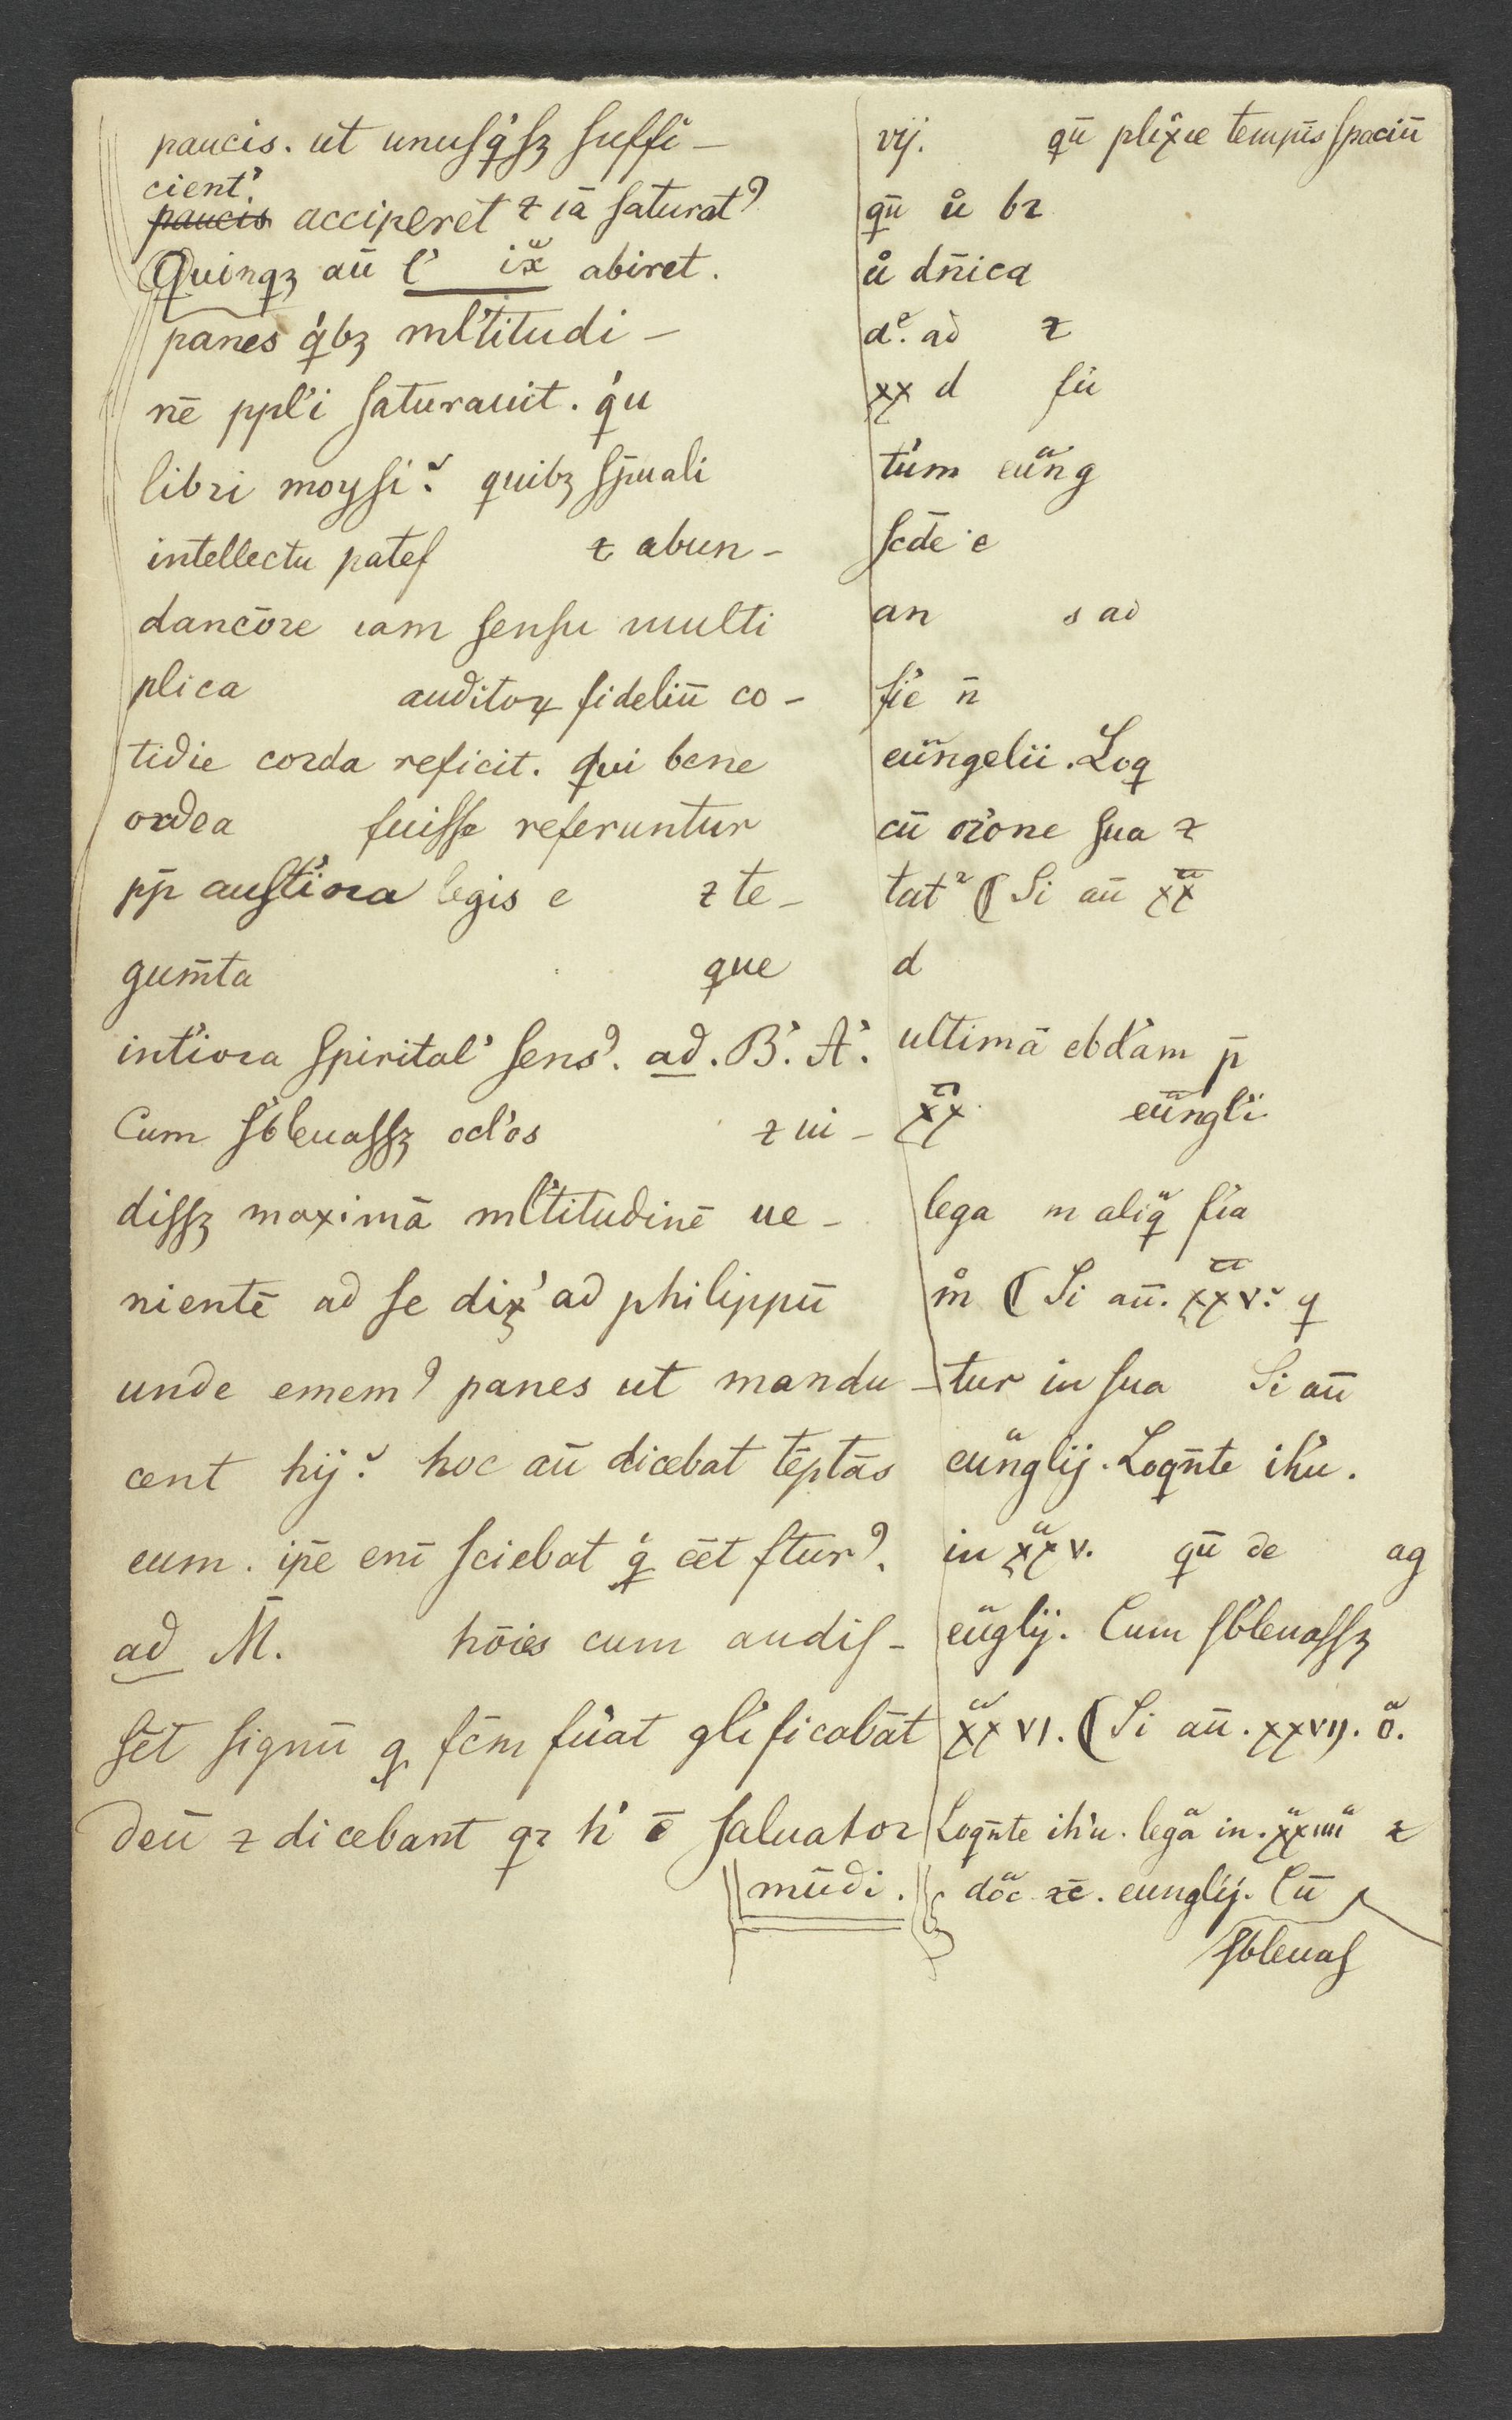 paucis. ut unuſq'ſʒ ſuffi-
cient'.
paucis acciperet ⁊ iā ſaturat'
Quinqʒ aū l' ix abiret.
panes q'bʒ ml'titudi-
nē ppl'i ſaturauit. q'u
libꝛi moyſi? quibʒ ſp̄uali
intellectu patef ⁊ abun-
dancōꝛe iam ſenſu multi
plica auditoꝝ fideliū co-
tidie coꝛda reficit. qui bene
oꝛdea fuiſſe referuntur
pp̄ auſt'ioꝛa legis e ⁊ te-
gum̄ta que
int'ioꝛa ſpirital' ſens'. ad. B'. A'.
Cum ſb'leuaſſʒ ocl'os ⁊ ui-
diſſʒ maximā ml'titudinē ue-
nientē ad ſe dix' ad philippū
unde emem' panes ut mandu-
cent hij? hoc aū dicebat tēptās
eum. ip̄e enī ſciebat q' eēt ftur'.
ad M̄. hōies cum audiſ-
ſēt signū q fc̄m fu'at gl'ificabāt
deū ⁊ dicebant qꝛ h' ē ſaluatoꝛ
mūdi.
vij. qū plixie temp̄is ſpaciū
qū ů bꝛ
ů dn̄ica
dͤ. ad ⁊
xx d fu'
tu'm euͣng
ſcd̄e e
an s ad
fi'e n̄
euͣngelii. Loq
cū oꝛ'one ſua ⁊
tatꝛ ¶ Si aū xxͣ
d
ultimā ebd'am p̄
xxͣ euͣngl'i
lega m aliqͣ fi'a
m̊ ¶ Si aū. xxͣv? q
tur in ſua Si aū
euͣnglij. Loqn̄te ih'u.
in xxͣv. qū de ag
euͣglij. Cum ſb'leuaſſʒ
xxͣvı. ¶ Si aū. xxvıȷ. oͣ.
Loqn̄te ih'u. legaͣ in. xxͣıııı ⁊
doͣc ⁊c̄. eunglij. Cū
ſbleuaſ